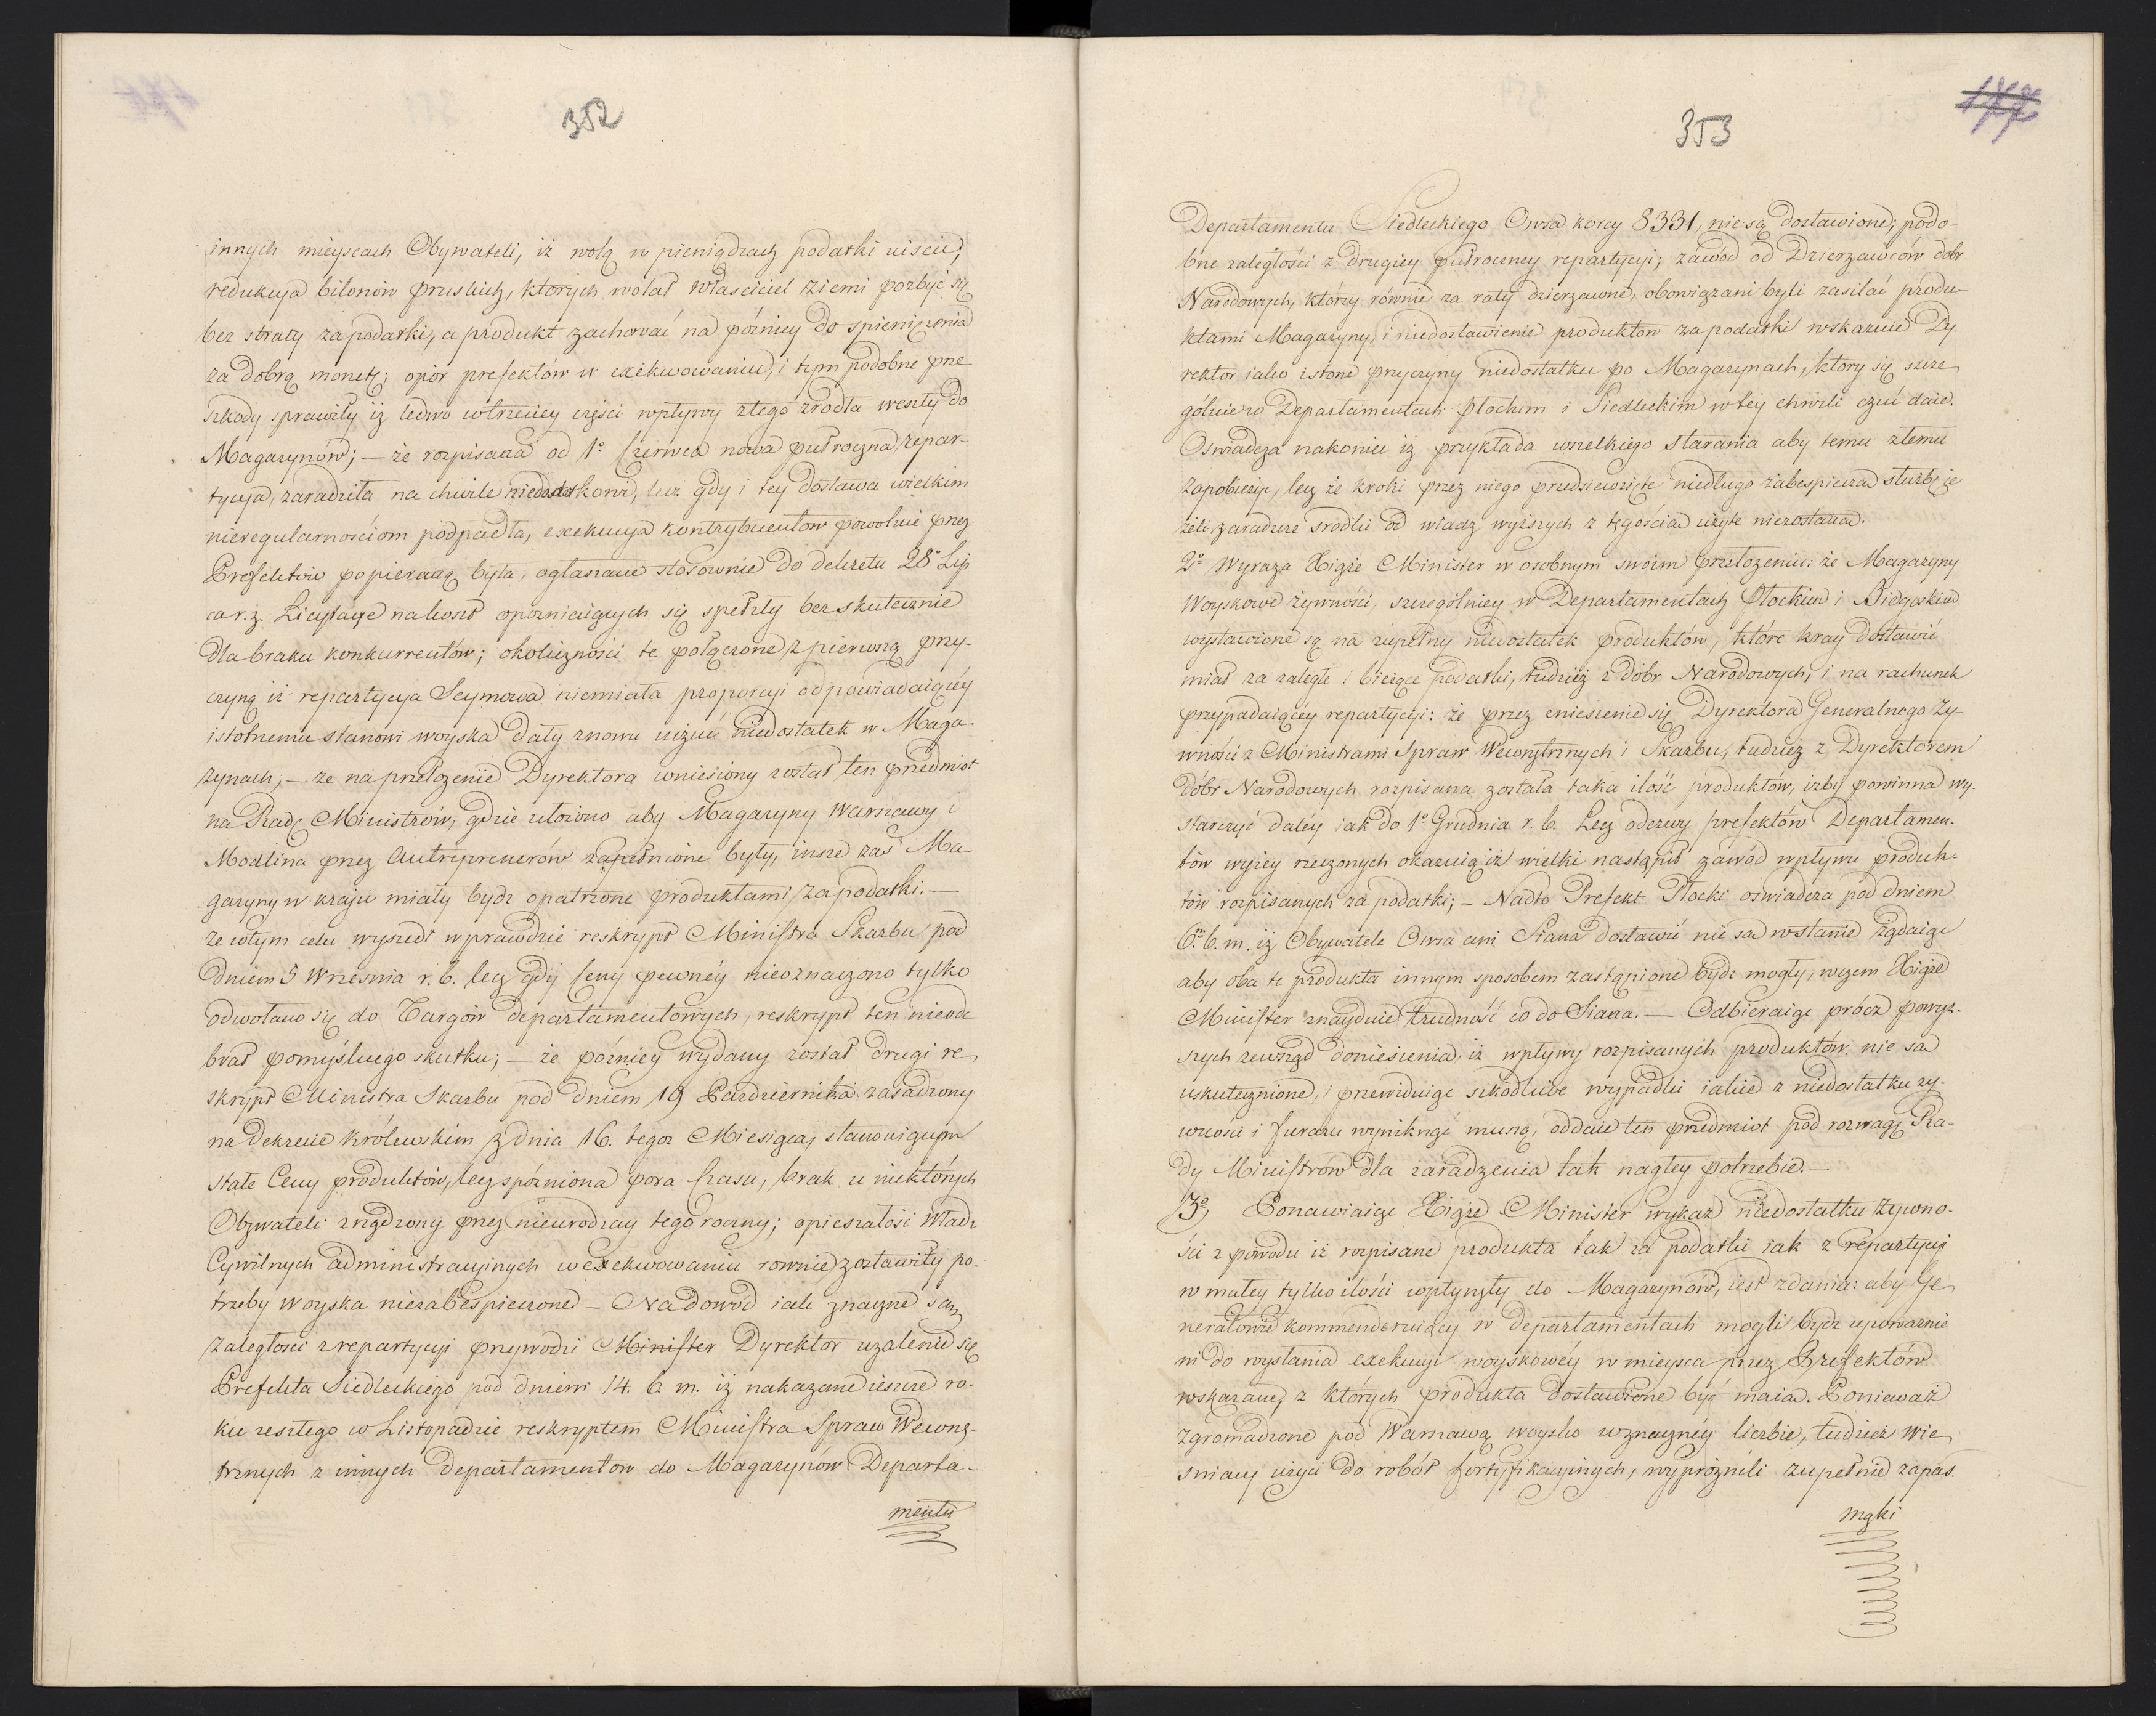 352
innych mieyscach Obywateli, iż wolą w pieniądzach podatki uiścić;
redukcya bilonów pruskich, których wolał właściciel ziemi pozbyć się
bez straty za podatki, a produkt zachować na późniey do spieniężenia
za dobrą monetę; opór prefektów w exekwowaniu, i tym podobne prze
szkody sprawiły iż ledwo w trzeciey części wpływy z tego źrodła weszły do
Magazynów; — że rozpisana od 1° Czerwca nowa pułroczna repar-
tycya, zaradziła na chwile niedostatkowi, lecz gdy i tey dostawa wielkim
nieregularnościom podpadła, exekucya kontrybuentów powolnie przez
Prefektów popieraną była, ogłaszane stosownie do dekretu 28° Lip
ca r. z. Licytacye na koszt opozniaiących się spełzły bezskutecznie
dla braku konkurrentów; okoliczności te połączone z pierwszą przy-
czyną iż repartycya Seymowa niemiała proporcyi odpowiadaiącéy
istotnemu stanowi woyska dały znowu uczuć niedostatek w Maga
zynach; — że na przełożenie Dyrektora wniesiony został ten przedmiot
na Radę Ministrów, gdzie ułożono aby Magazyny Warszawy i
Modlina przez Autreprenerów zapełnione były, insze zaś Ma
gazyny w kraju miały bydz opatrzone produktami za podatki. —
że w tym celu wyszedł wprawdzie reskrypt Ministra Skarbu pod
dniem 5 Września r. b. lecz gdy Ceny pewnéy nieoznaczono tylko
odwołano się do Targów departamentowych, reskrypt ten nieode
brał pomyślnego skutku; — że późniey wydany został drugi re
skrypt Ministra Skarbu pod dniem 19 Pazdziernika zasadzony
na Dekrecie Królewskim z dnia 16. tegoz Miesiąca, stanowiącym
stałe Ceny produktów, lecz spóźniona pora Czasu, brak u niektórych
Obywateli zrządzony przez nieurodzay tegoroczny; opieszałość Władz
Cywilnych administracyinych w exekwowaniu rownie zostawiły po-
trzeby woyska niezabespieczone — Na dowód iak znaczne są
zaległości z repartycyi przywodzi Minister Dyrektor uzalenie się
Prefekta Siedleckiego pod dniem 14. b. m. iż nakazane ieszcze ro-
ku zeszłego w Listopadzie reskryptem Ministra Spraw Wewnę-
trznych z innych departamentow do Magazynów Departa-
mentu
353
177
Departamentu Siedleckiego Owsa korcy 8331, nie są dostawione; podo-
bne zaległości z drugiey pułroczney repartycyi; zawód od Dzierzawców dobr
Narodowych, którzy równie za raty dzierzawne, obowiązani byli zasilać produ-
ktami Magazyny, i niedostawienie produktow za podatki wskazuie Dy
rektor iako istone przyczyny niedostatku po Magazynach, ktory się szcze
gólnie w Departamentach Płockim i Siedleckim w tey chwili czuć daie.
Oswiadcza nakoniec iż przykłada wszelkiego starania aby temu złemu
zapobieżyć, lecz że kroki przez niego przedsiewzięte niedługo zabespieczą służbę ie
żeli zaradcze srodki od władz wyższych z tęgością użyte niezostaną.
2° Wyraża Xiąże Minister w osobnym swoim przełożeniu: że Magazyny
Woyskowe żywności, szczególniey w Departamentach Płockim i Bydgoskim
wystawione są na zupełny niedostatek produktów, które kray dostawić
miał za zaległe i bieżące podatki, tudzież z dóbr Narodowych, i na rachunek
przypadaiącéy repartycyi: że przez zniesienie się Dyrektora Generalnego Ży
wności z Ministrami Spraw Wewnętrznych i Skarbu, tudzież z Dyrektorem
dóbr Narodowych rozpisana została taka ilość produktów, iżby powinna wy-
starczyć daléy iak do 1° Grudnia r. b. Lecz odezwy prefektów Departamen-
tów wyżey rzeczonych okazuią iż wielki nastąpił zawód wpływu produk-
tów rozpisanych za podatki; — Nadto Prefekt Płocki oświadcza pod dniem
6m b. m. iż Obywatele Owsa ani Siana dostawić nie są w stanie żądaiąc
aby oba te produkta innym sposobem zastąpione bydz mogły, w czem Xiąże
Minister znayduie trudność co do Siana. — Odbieraiąc prócz powyż-
szych zewsząd doniesienia, iż wpływy rozpisanych produktów nie są
uskutecznione, i przewiduiąc szkodliwe wypadki iakie z niedostatku ży-
wności i furażu wyniknąć muszą, oddaie ten przedmiot pod rozwagę Ra-
dy Ministrów dla zaradzenia tak nagłey potrzebie. —
3° Ponawiaiąc Xiąże Minister wykaz niedostatku żywno-
ści z powodu iż rozpisane produkta tak za podatki iak z repartycyi
w małey tylko ilości wpłynęły do Magazynów, iest zdania: aby Ge
nerałowie kommenderuiący w departamentach mogli bydz upoważnie
ni do wysłania exekucyi woyskowéy w mieysca przez Prefektów
wskazane, z których produkta dostawione być maią. Ponieważ
zgromadzone pod Warszawą woysko w znacznéy liczbie, tudzież Wie
sniacy użyci do robót fortyfikacyinych, wypróżnili zupełnie zapas
mąki